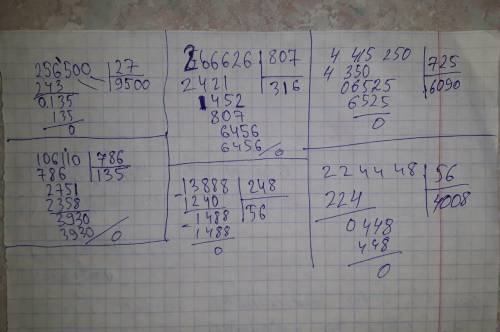 256500 | 27
243 | 9500
0135
135
0
266626 | 807
2421 | 316
1452
807
6456
6456
0
4 415 250 | 725
4 350 | 6090
06525
6525
0
106110 | 786
786 | 135
2751
2358
3930
3930
0
- 13888 | 248
1240 | 56
- 1488
1488
0
224448 | 56
224 | 4008
0448
448
0